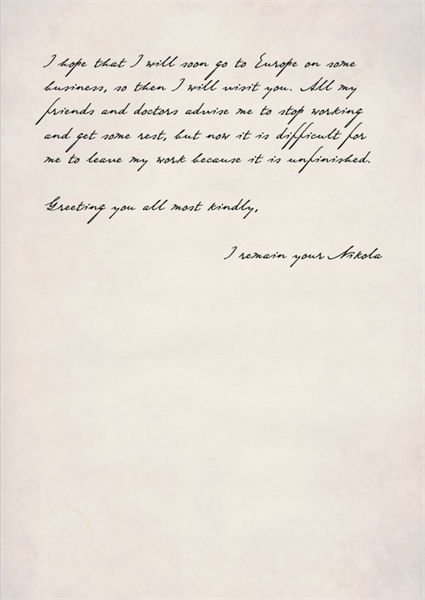 I hope that I will soon go to Europe on some
business, so then I will visit you. All my
friends and doctors advise me to stop working
and get some rest, but now it is difficult for
me to leave my work because it is unfinished.
Greeting you all most kindly,
I remain your Nikola